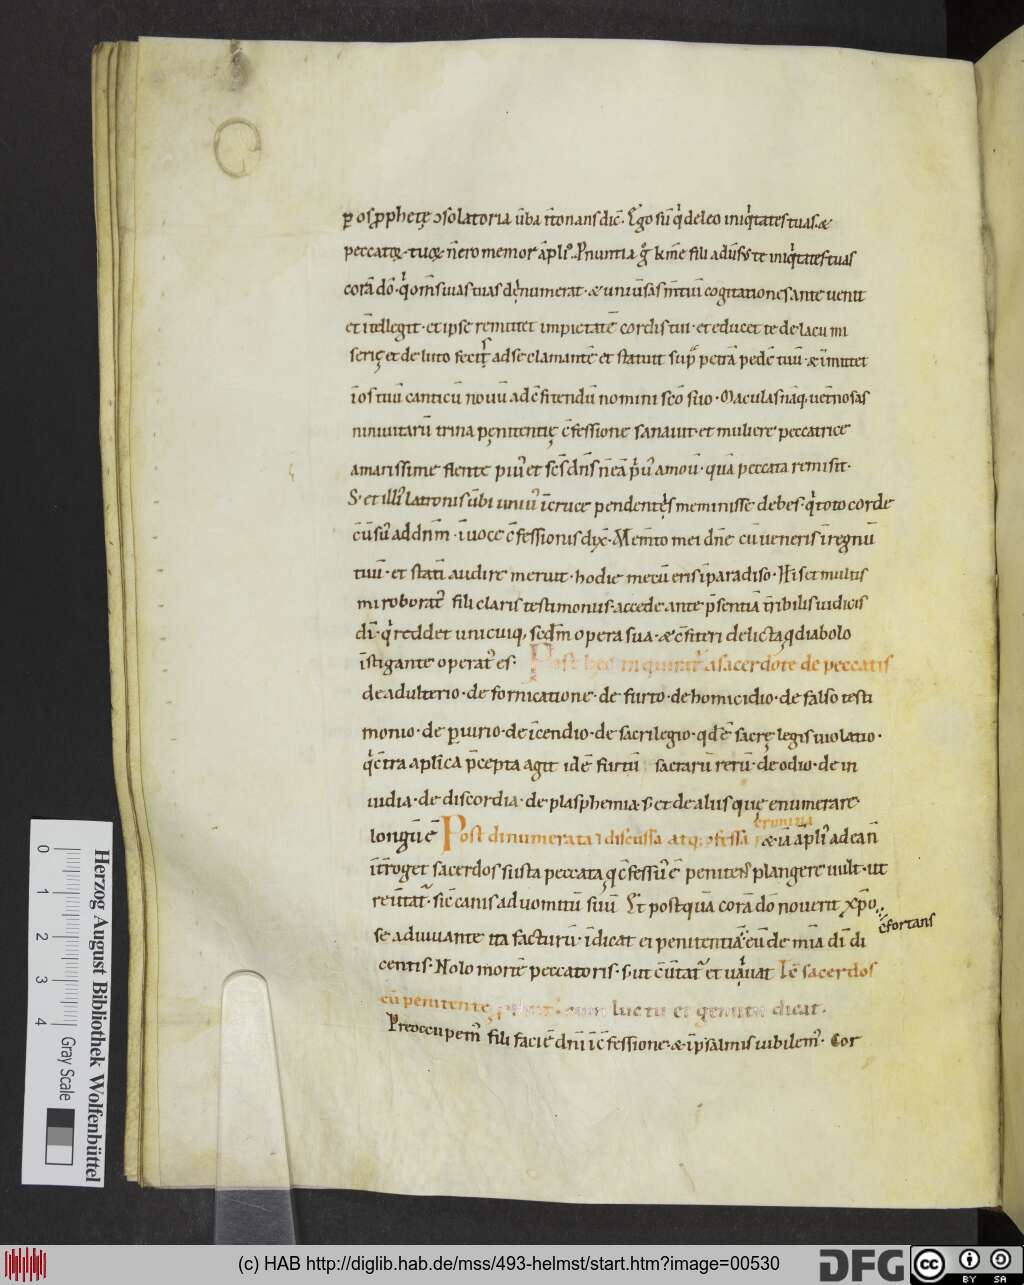 ꝑ os ꝓphetę ↄsolatoria ūba ītonans dic̄. Ego sū q̇ deleo iniq̇tates tuas. &
peccata tua n̄ero memor āpli᾽. Pnuntia g̊ km̄e fili adūsū te iniq̇tates tuas
corā dō. q̇ om̄s uias tuas dęnumerat. & uniūsas m̄tiū cogitationes ante uenit
et īttllegit. et ipse remittet impietatē cordis tui. et educet te de lacu mi
serię et de luto fecis ad se clamantē et statuit suꝑ petrā pedē tuū. & īmittet
ī os tuū canticū nouū ad c̄fitendū nomini scō suo. Maculas nāq, uetnosas
niniuitarū trina pęnitentię c̄fessione sanauit. et muliere peccatrice
amarissime flente piu᾽ et scs dn̄s
S. et illi᾽ latronis ūbi uniu᾽ ī cruce pendentęs meminisse debes. q̇ toto corde
c̄uersu᾽ ad dn̄m. ī uoce c̄fessionis dix̄. Mem̄to mei dn̄e cū ueneris ī regnū
tuū. et statī audire meruit. hodie mecū eris ī paradiso. His et multis
mi roborat᾽ fili claris testimoniis. accede ante p̄sentiā t̄ribilis iudicis
dī. q̇ reddet unicuiq, scdm̄ opera sua. & c̄fiteri delicta q diabolo
īstigante operat᾽ es. Post hęc inquirit᾽ a sacerdote de peccatis
de adulterio. de fornicatione. de furto. de homicidio. de falso testi
monio. de ꝑiurio. de īcendio. de sacrilegio. qd ē sacrę legis uiolatio.
q̇ c̄tra aplica p̄cepta agit idē furtū sacrarū rerū. de odio. de in
uidia. de discordia. de plasphemia. s. et de aliis que enumerare
longū ē Post dinumerata ⁊ discussa atq, ↄfessa crimina & iā āpli᾽ ad ean̄
īt̄roget sacerdos si ista peccata q c̄fessu᾽ ē penitens plangere uult. ut
reūtat᾽. sic̄ canis ad uomitū suū. Et postquā corā dō nouerit xp̄o
se adiuuante ita facturū. īdicat ei penitentiā eū de mīa dī di c̄fortans
centis. Nolo mortē peccatoris. s. ut c̄ūtat᾽ et uiuat Tē sacerdos
cū penitente cum luctu et gemitu dicat.
Preoccupem᾽ fili faciē dn̄i ī c̄fessione. & ī psalmis iubilem᾽. Cor
0 1 2 3 4
Herzog August Bibliothek Wolfenbüttel
Gray Scale
(c) HAB http://diglib.hab.de/mss/493-helmst/start.htm?image=00530
DFG
cc BY SA